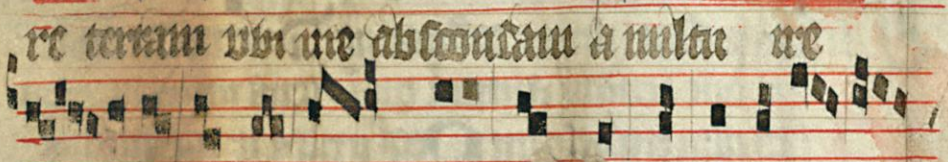 re terram vbi me abscondam a uultu ire